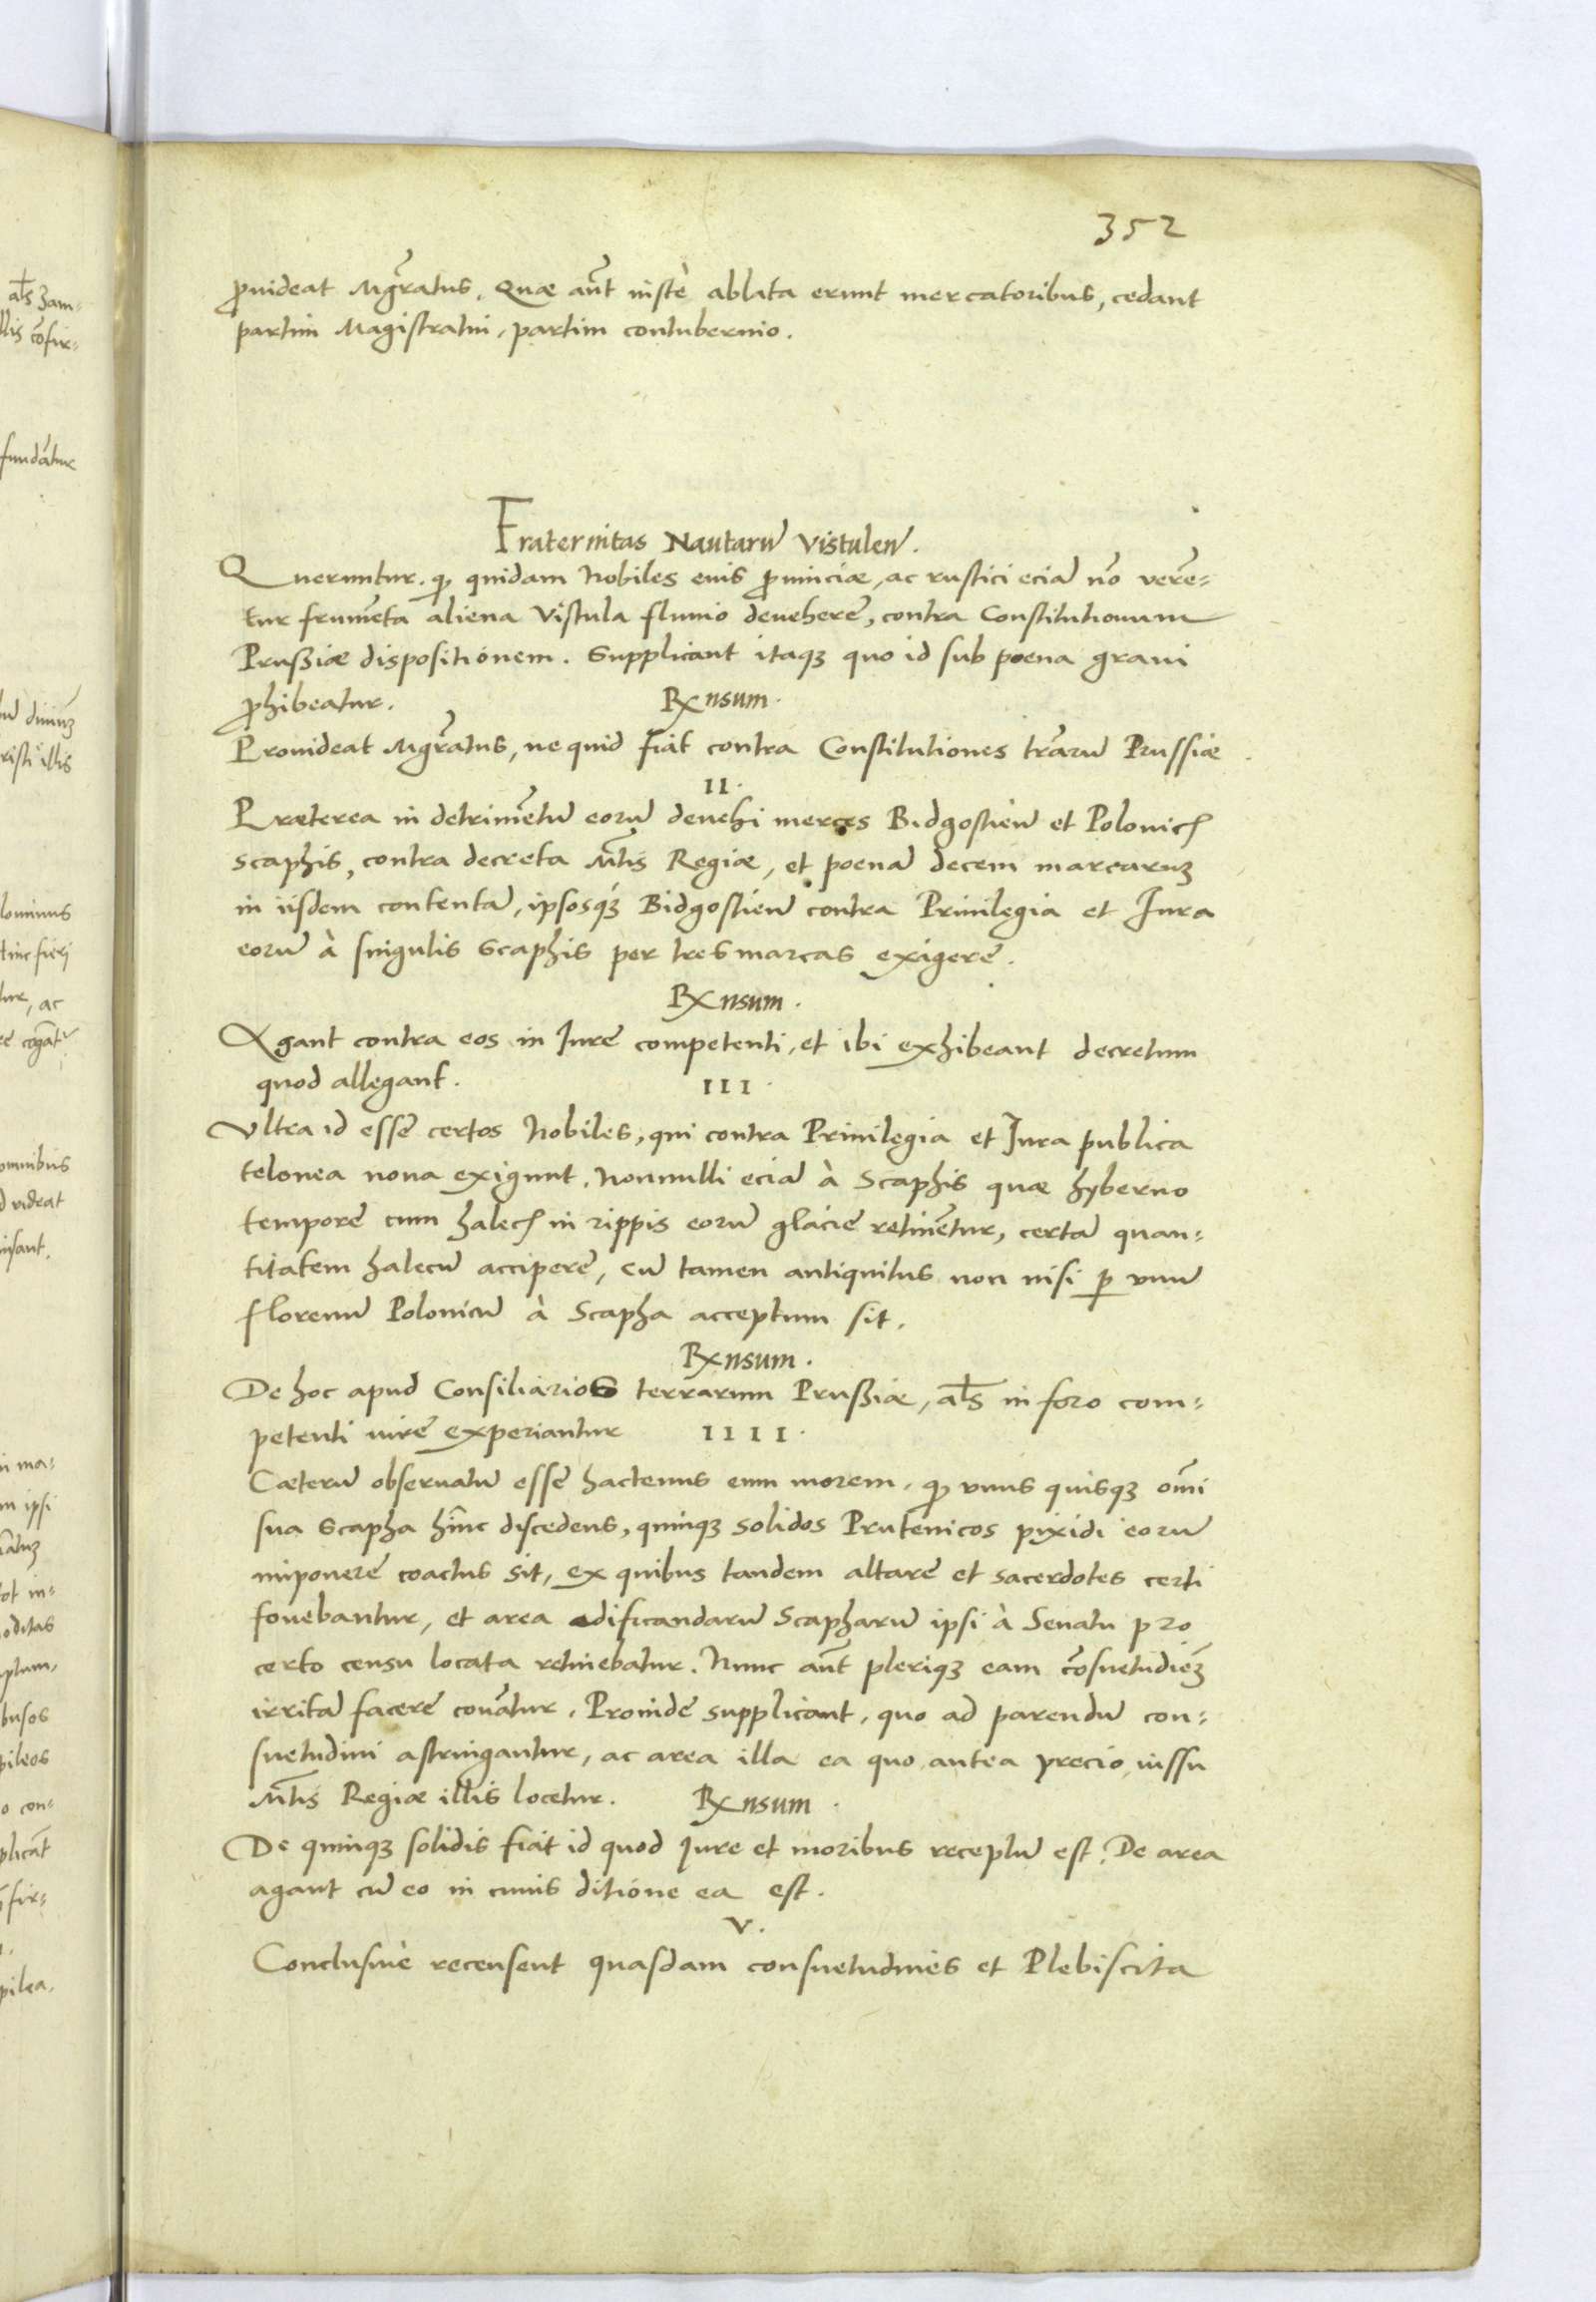 352
ꝓuideat Mgr̃atus. Quæ aũt iustè ablata erunt mercatoribus, cedant
partim Magistratui, partim contubernio.
Fraternitas Nautarũ Vistulen̄.
Queruntur. ꝙ quidam Nobiles euis ꝓuinciæ, ac rustici eciã nõ verẽ-
tur frumẽta aliena Vistula fluuio deuehere, contra Constitutionum
Prußiæ dispositionem. Supplicant itaqꝫ quo id sub poena graui
ꝓhibeatur. Rxnsum.
Prouideat Mgr̃atus, ne quid fiat contra Constitutiones tr̃arũ Prussiæ.
II.
Præterea in detrimẽtũ eorũ deuehi merces Bidgostien̄ et Polonicꝭ
scaphis, contra decreta Mt̃is Regiæ, et poenã decem marcaruꝫ
in iisdem contentã, ipsosqꝫ Bidgostien̄ contra Priuilegia et Jura
eorũ à singulis scaphis per tres marcas exigere.
Rxnsum.
Agant contra eos in Jure competenti, et ibi exhibeant decretum
quod allegant. III.
Vltra id esse certos Nobiles, qui contra Priuilegia et Jura publica
telonea noua exigunt. Nonnulli eciã à Scaphis quæ hyberno
tempore cum halecꝭ in rippis eorũ glacie retinẽtur, certã quan-
titatem halecũ accipere, cũ tamen antiquitus non nisi ꝑ vnũ
florenũ Polonicũ à Scapha acceptum sit.
Rxnsum.
De hoc apud Consiliarios terrarum Prußiæ, al̃s in foro com-
petenti iure experiantur IIII.
Cæterũ obseruatũ esse hactenus eum morem, ꝙ vnus quisqꝫ om̃i
sua scapha hinc discedens, quinqꝫ solidos Prutenicos pixidi eorũ
imponere coactus sit, ex quibus tandem altare et sacerdotes certi
fouebantur, et area ædificandarũ Scapharũ ipsi à Senatu pro
certo censu locata retinebatur. Nunc aũt pleriqꝫ eam cõsuetudiẽꝫ
irritã facere conãtur. Proinde supplicant, quo ad parendũ con-
suetudini astringantur, ac area illa ea quo antea precio, iussu
Mt̃is Regiæ illis locetur. Rxnsum.
De quinqꝫ solidis fiat id quod Jure et moribus receptũ est. De area
agant cũ eo in cuius ditione ea est.
V.
Conclusiuè recensent quasdam consuetudines et Plebiscita